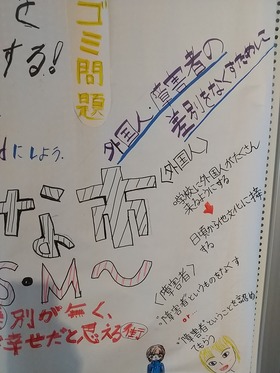 と
する!
ゴミ問題
にしよう.
外国人・障害者の
差別をなくすために
な市
S・M〜
別が無く、
幸せだと思える街
〈外国人〉
学校に外国人がたくさん
来るようにする
日頃から他文化に接
する
〈障害者〉
"障害者"というものをなくす
or
"障害者"ということを認め
てもらう